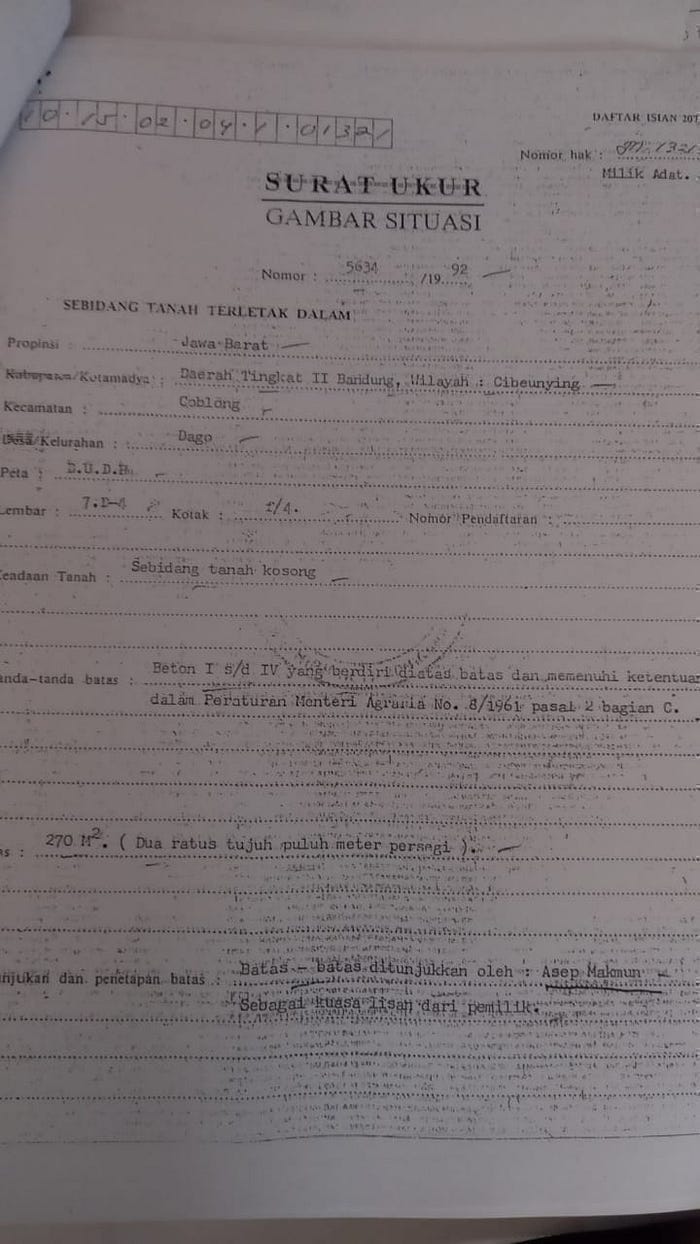 10.15.02.04.1.01321
DAFTAR ISIAN 207
Nomor hak : 1321
Milik Adat.
SURAT UKUR
GAMBAR SITUASI
Nomor : 5634 /19 92
SEBIDANG TANAH TERLETAK DALAM
Propinsi : Jawa Barat
Kabupaten/Kotamadya : Daerah Tingkat II Bandung, Wilayah : Cibeunying
Kecamatan : Coblong
Desa/Kelurahan : Dago
Peta :
Lembar : Kotak : /4. Nomor Pendaftaran :
eadaan Tanah : Sebidang tanah kosong
anda-tanda batas : Beton I s/d IV yang berdiri diatas batas dan memenuhi ketentuan
dalam Peraturan Menteri Agraria No. 8/1961 pasal 2 bagian C.
as : 270 M2. ( Dua ratus tujuh puluh meter persegi ).
unjukan dan penetapan batas : Batas - batas ditunjukkan oleh : Asep Makmun
Sebagai kuasa lisan dari pemilik.